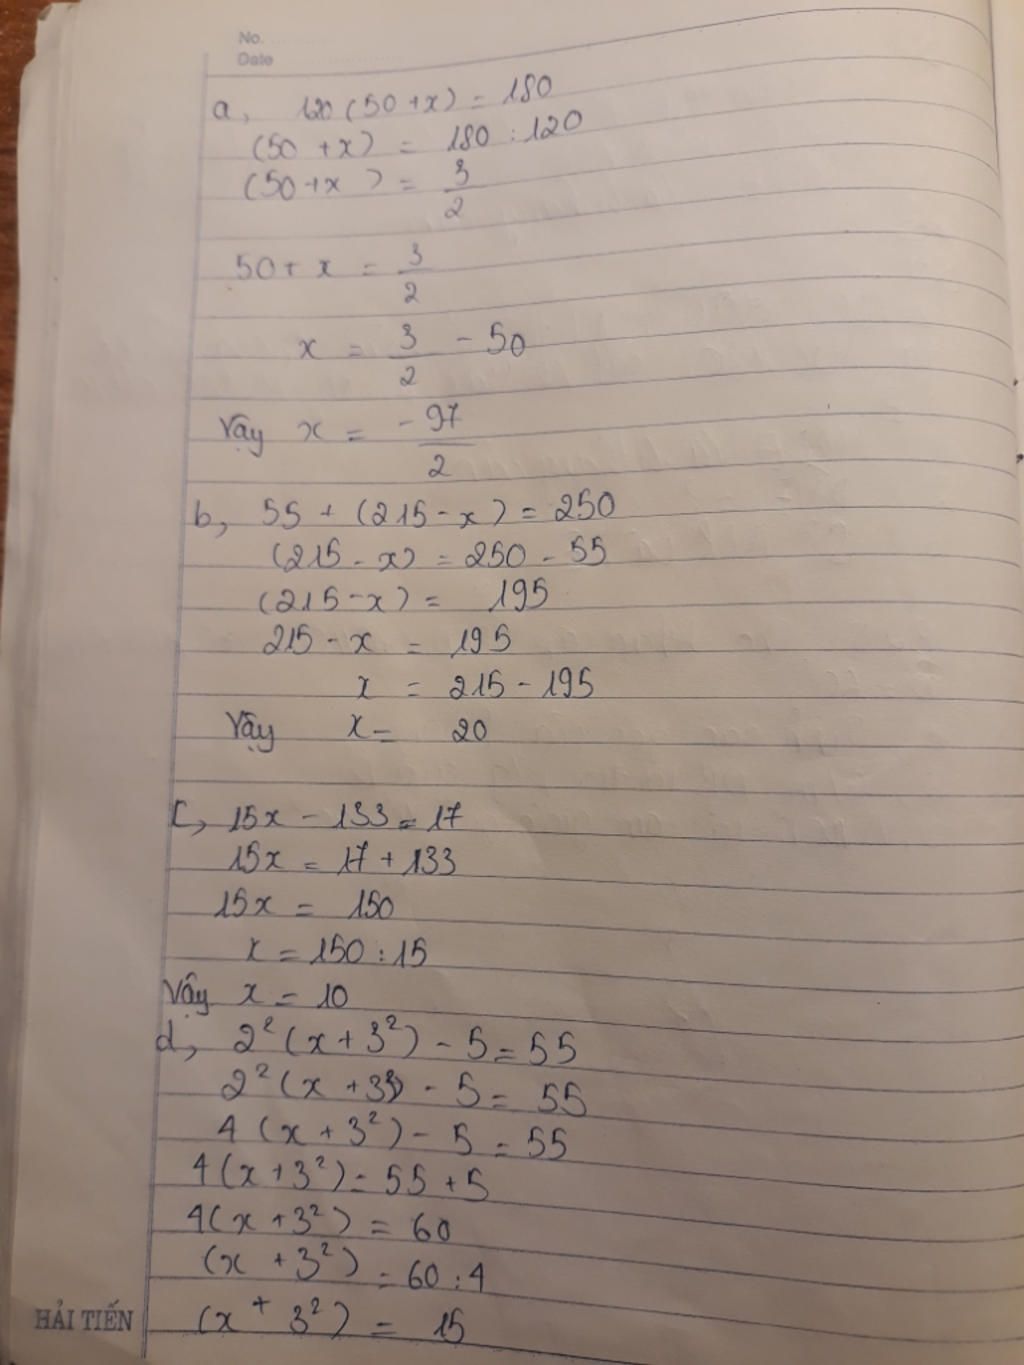 No.
Date
a, 120 (50 + x) = 180
(50 + x) = 180 : 120
(50 + x) = 3/2
50 + x = 3/2
x = 3/2 - 50
Vậy x = -97/2
b, 55 + (215 - x) = 250
(215 - x) = 250 - 55
(215 - x) = 195
215 - x = 195
x = 215 - 195
Vậy x = 20
c, 15x - 133 = 17
15x = 17 + 133
15x = 150
x = 150 : 15
Vậy x = 10
d, 2² (x + 3²) - 5 = 55
2² (x + 3²) - 5 = 55
4 (x + 3²) - 5 = 55
4 (x + 3²) = 55 + 5
4 (x + 3²) = 60
(x + 3²) = 60 : 4
(x + 3²) = 15
HẢI TIẾN